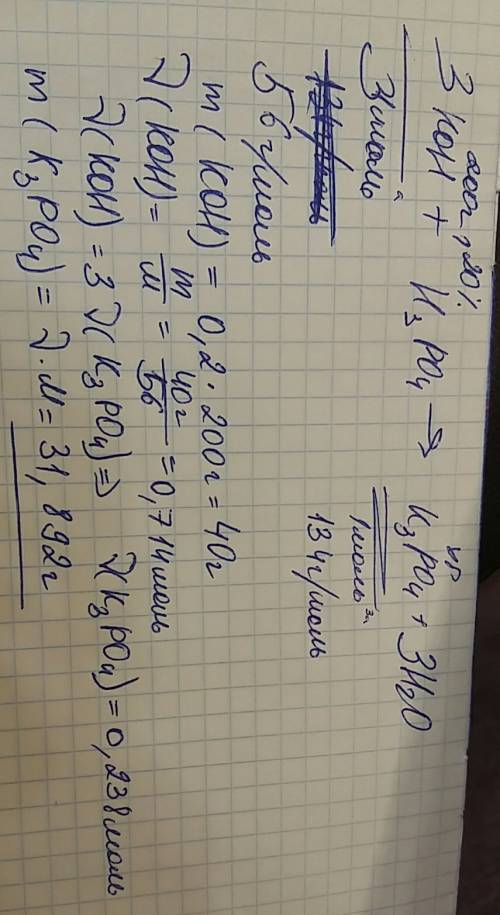 200г, 20% хг
3 KOH + H₃PO₄ → K₃PO₄ + 3H₂O
3моль 1моль
56 г/моль 134г/моль
m( KOH) = 0,2 · 200г = 40г
ν(KOH) = m/M = 40г/56 = 0,714моль
ν(KOH) = 3 ν(K₃PO₄) ⇒ ν(K₃PO₄) = 0,238моль
m( K₃PO₄) = ν · M = 31,892г